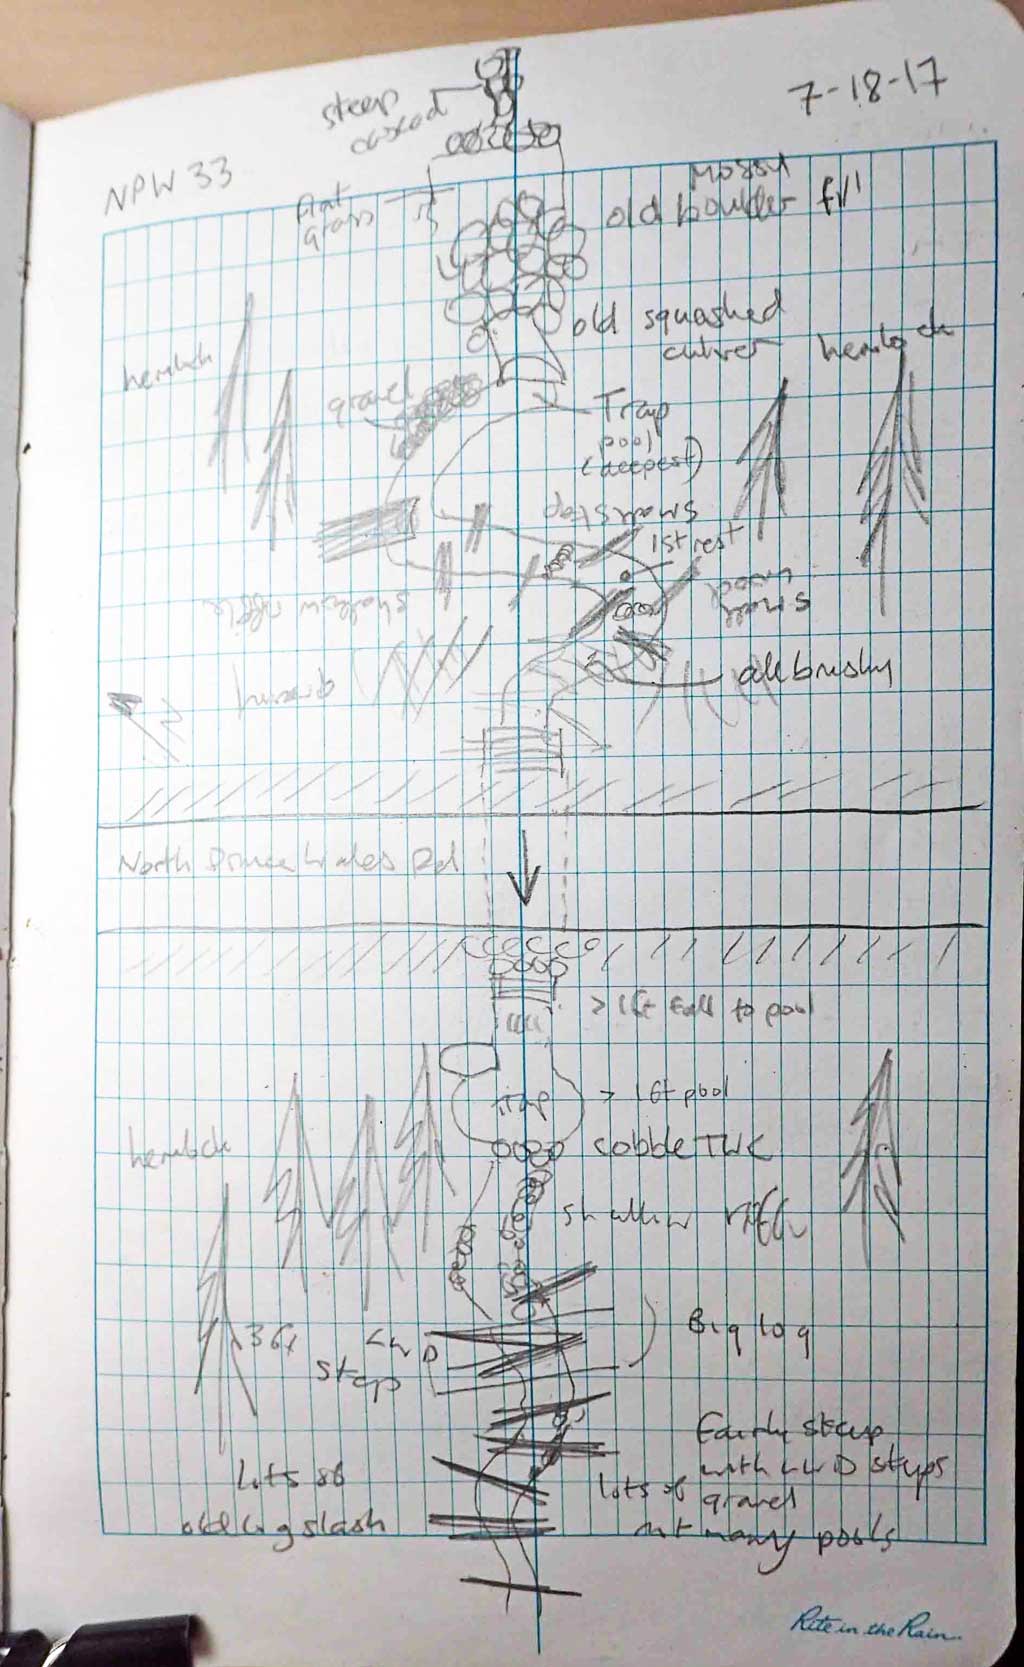 7-18-17
steep
cascad
NPW 33
flat
grass
Mossy
old boulder fill
old squashed
culver
hemlock
hemlock
gravel
Trap
pool
(deepest)
small step
1st rest
shallow riffle
small
wood
gravel
all brushy
N
North Prince Wales Rd
> 1ft fall to pool
Trap
> 1ft pool
hemlock
cobble TWC
shallow riffle
3ft
LWD
step
Big log
Fairly steep
with LWD steps
lots of
gravel
lots of
old log slash
not many pools
Rite in the Rain